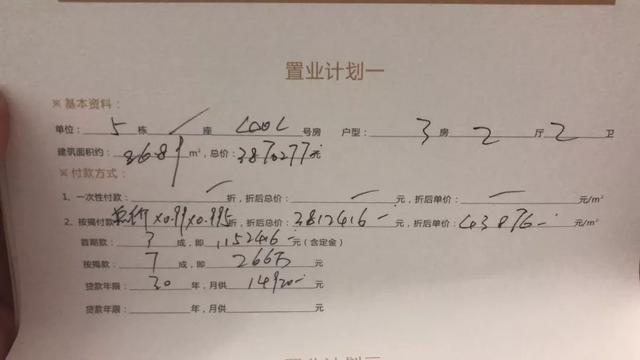 置业计划一
※ 基本资料：
单位：5 栋 / 座 号房 户型：3 房 2 厅 2 卫
建筑面积约：86.89 m²，总价：3870277 元
※ 付款方式：
1、一次性付款：/ 折，折后总价：/ 元，折后单价：/ 元/m²
2、按揭付款：总价×0.99×0.995 折，折后总价：3812416- 元，折后单价：43876- 元/m²
首期款：3 成，即 1152416- 元（含定金）
按揭款：7 成，即 266万 元
贷款年限：30 年，月供 14920- 元
贷款年限： 年，月供 元